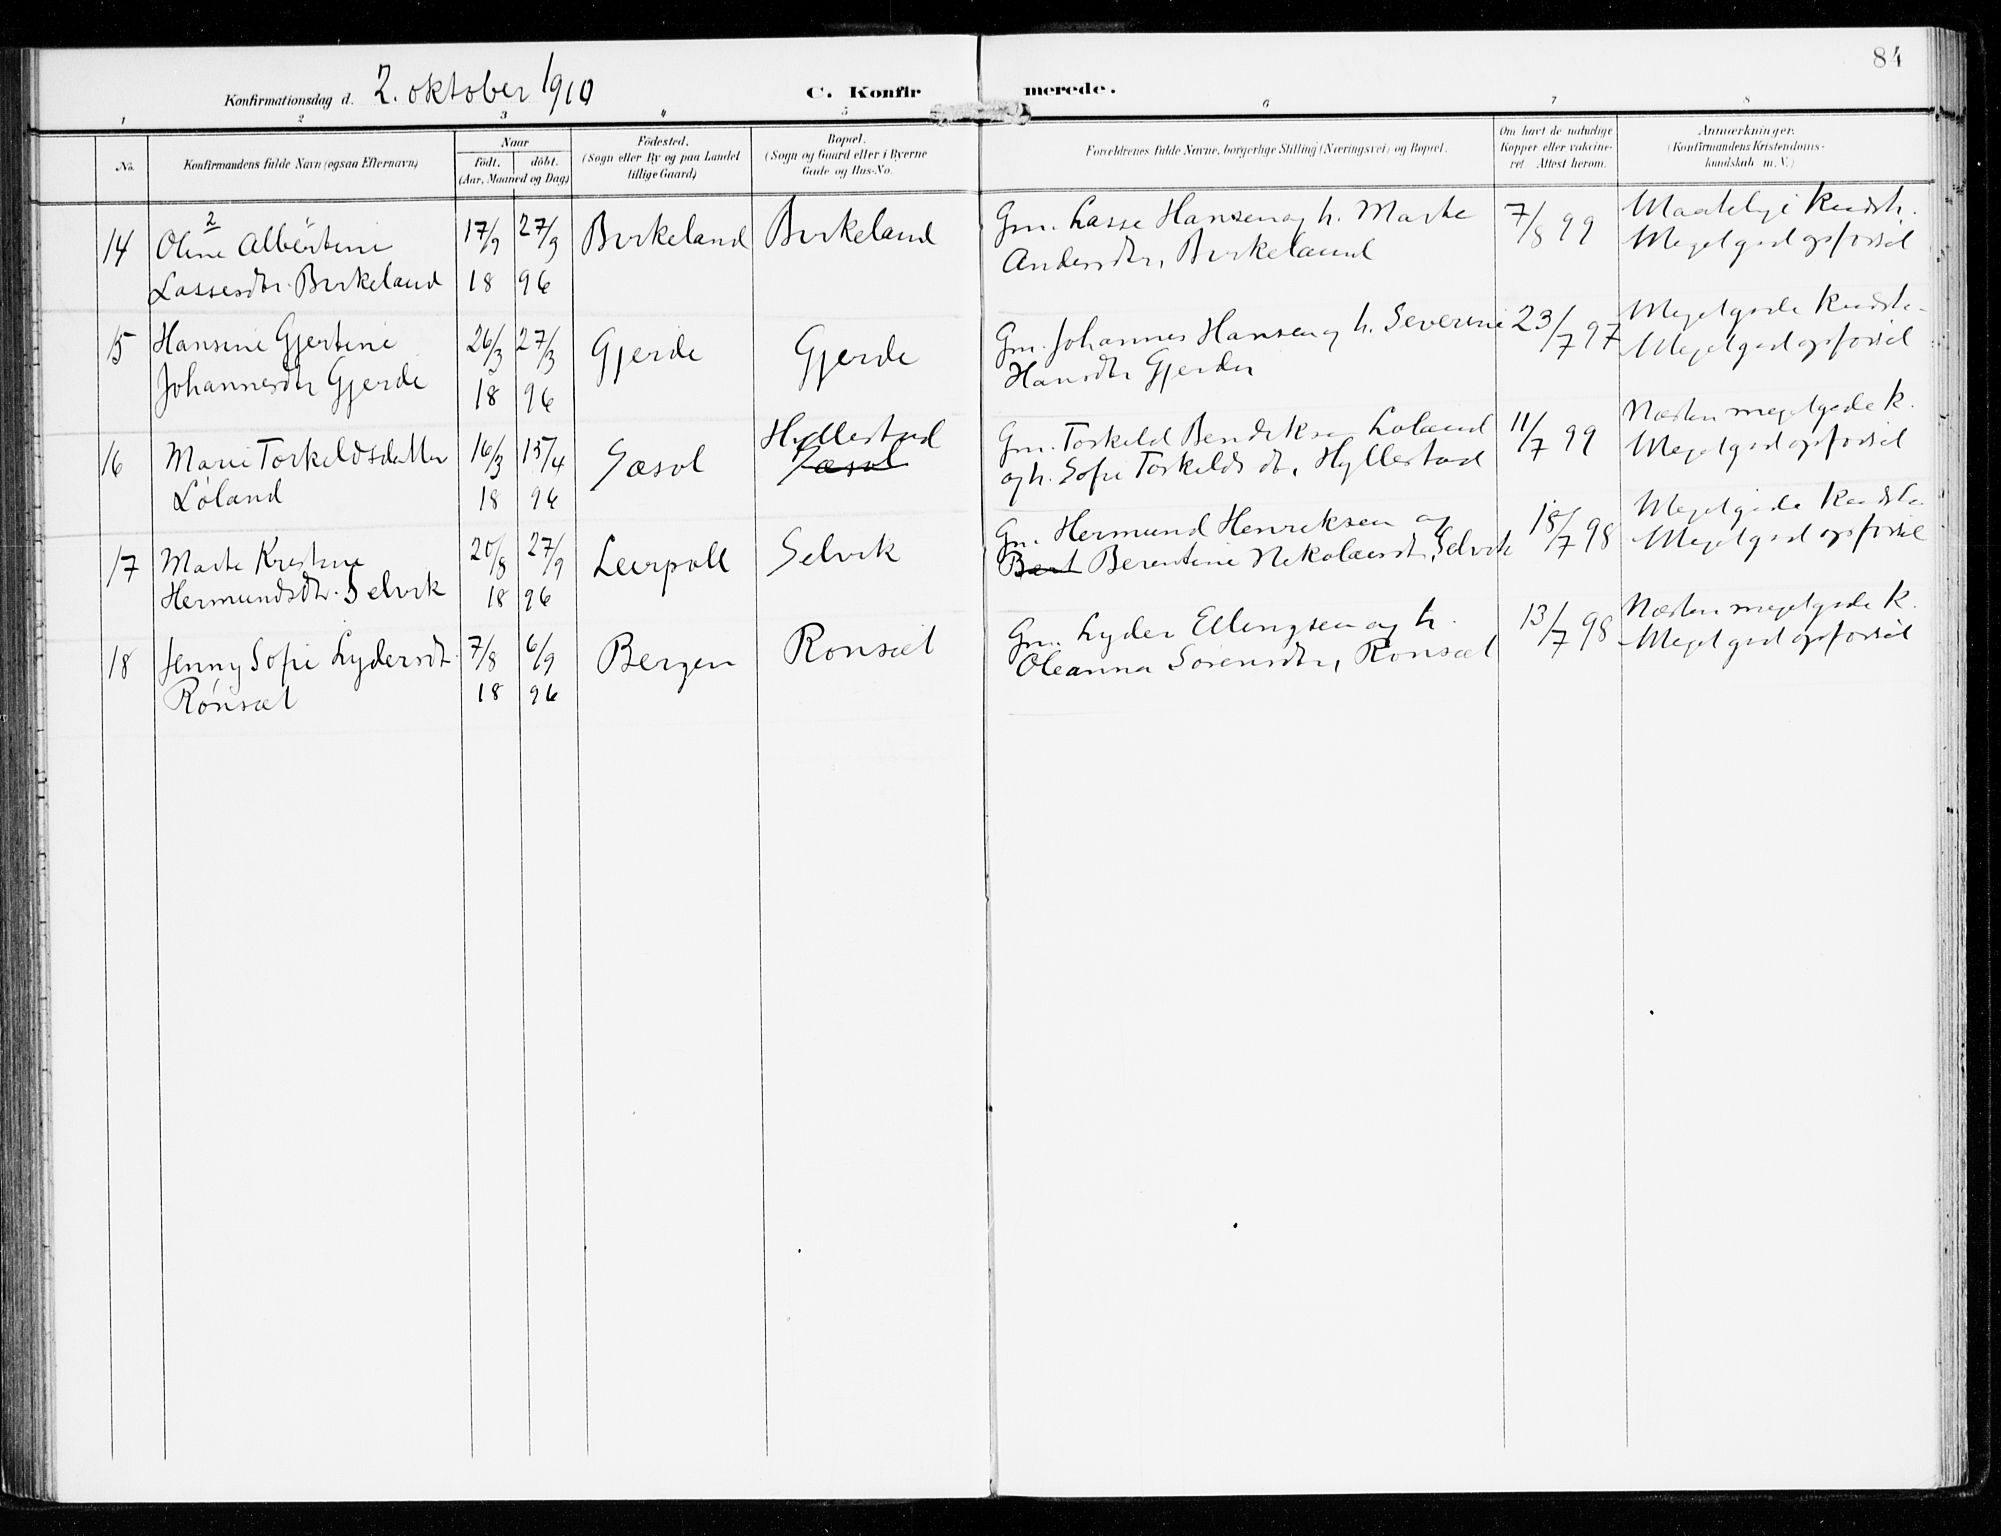 84
Konfirmationsdag d. 2. oktober 1910
C. Konfirmerede.
1 2 3 4 5 6 7 8
No.
Konfirmandens fulde Navn (ogsaa Efternavn)
Naar
födt. döbt.
(Aar, Maaned og Dag)
Födested.
(Sogn eller By og paa Landet
tillige Gaard)
Bopæl.
(Sogn og Gaard eller i Byerne
Gade og Hus-No.
Forældrenes fulde Navne, borgerlige Stilling (Næringsvei) og Bopæl.
Om havt de naturlige
Kopper eller vakcine-
ret Attest herom.
Anmærkninger.
(Konfirmandens Kristendoms-
kundskab m.V.)
14
2
Oline Albertine
Lassesdtr. Birkeland
17/9 18
27/9 96
Birkeland
Birkeland
Gm. Lasse Hansen og h. Marte
Andersdtr, Birkeland
7/8 99
Maatelige kundsk.
Meget god opførsel
15
Hansine Gjertine
Johannesdtr Gjerde
26/3 18
27/3 96
Gjerde
Gjerde
Gm. Johannes Hansen og h. Severine
Hansdtr Gjerde
23/7 97
Meget gode kundsk.
Meget god opførsel
16
Marie Torkeldsdatter
Løland
16/3 18
15/4 96
Sæsol
Hyllestad
Sæsol
Gm. Torkeld Bendiksen Løland
og h. Sofie Torkeldsdt, Hyllestad
11/7 99
Næsten meget gode k.
Meget god opførsel
17
Marte Kristine
Hermundsdtr. Selvik
20/8 18
27/9 96
Leirpoll
Selvik
Gm. Hermund Henriksen og
Bert Berentine Nikolaisdt, Selvik
18/7 98
Meget gode kundsk.
Meget god opførsel
18
Jenny Sofie Lydersdt.
Rønset
7/8 18
6/9 96
Bergen
Rønset
Gm. Lyder Ellingsen og h.
Oleanna Sørensdtr, Rønset
13/7 98
Næsten meget gode k.
Meget god opførsel